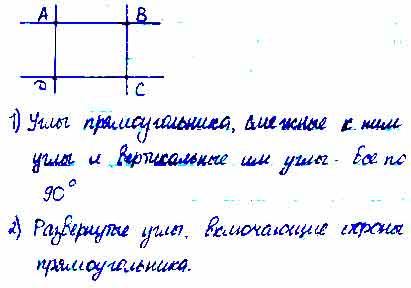 A B
D C
1) Углы прямоугольника, смежные к ним
углы и вертикальные им углы - все по
90°
2) Развернутые углы, включающие стороны
прямоугольника.